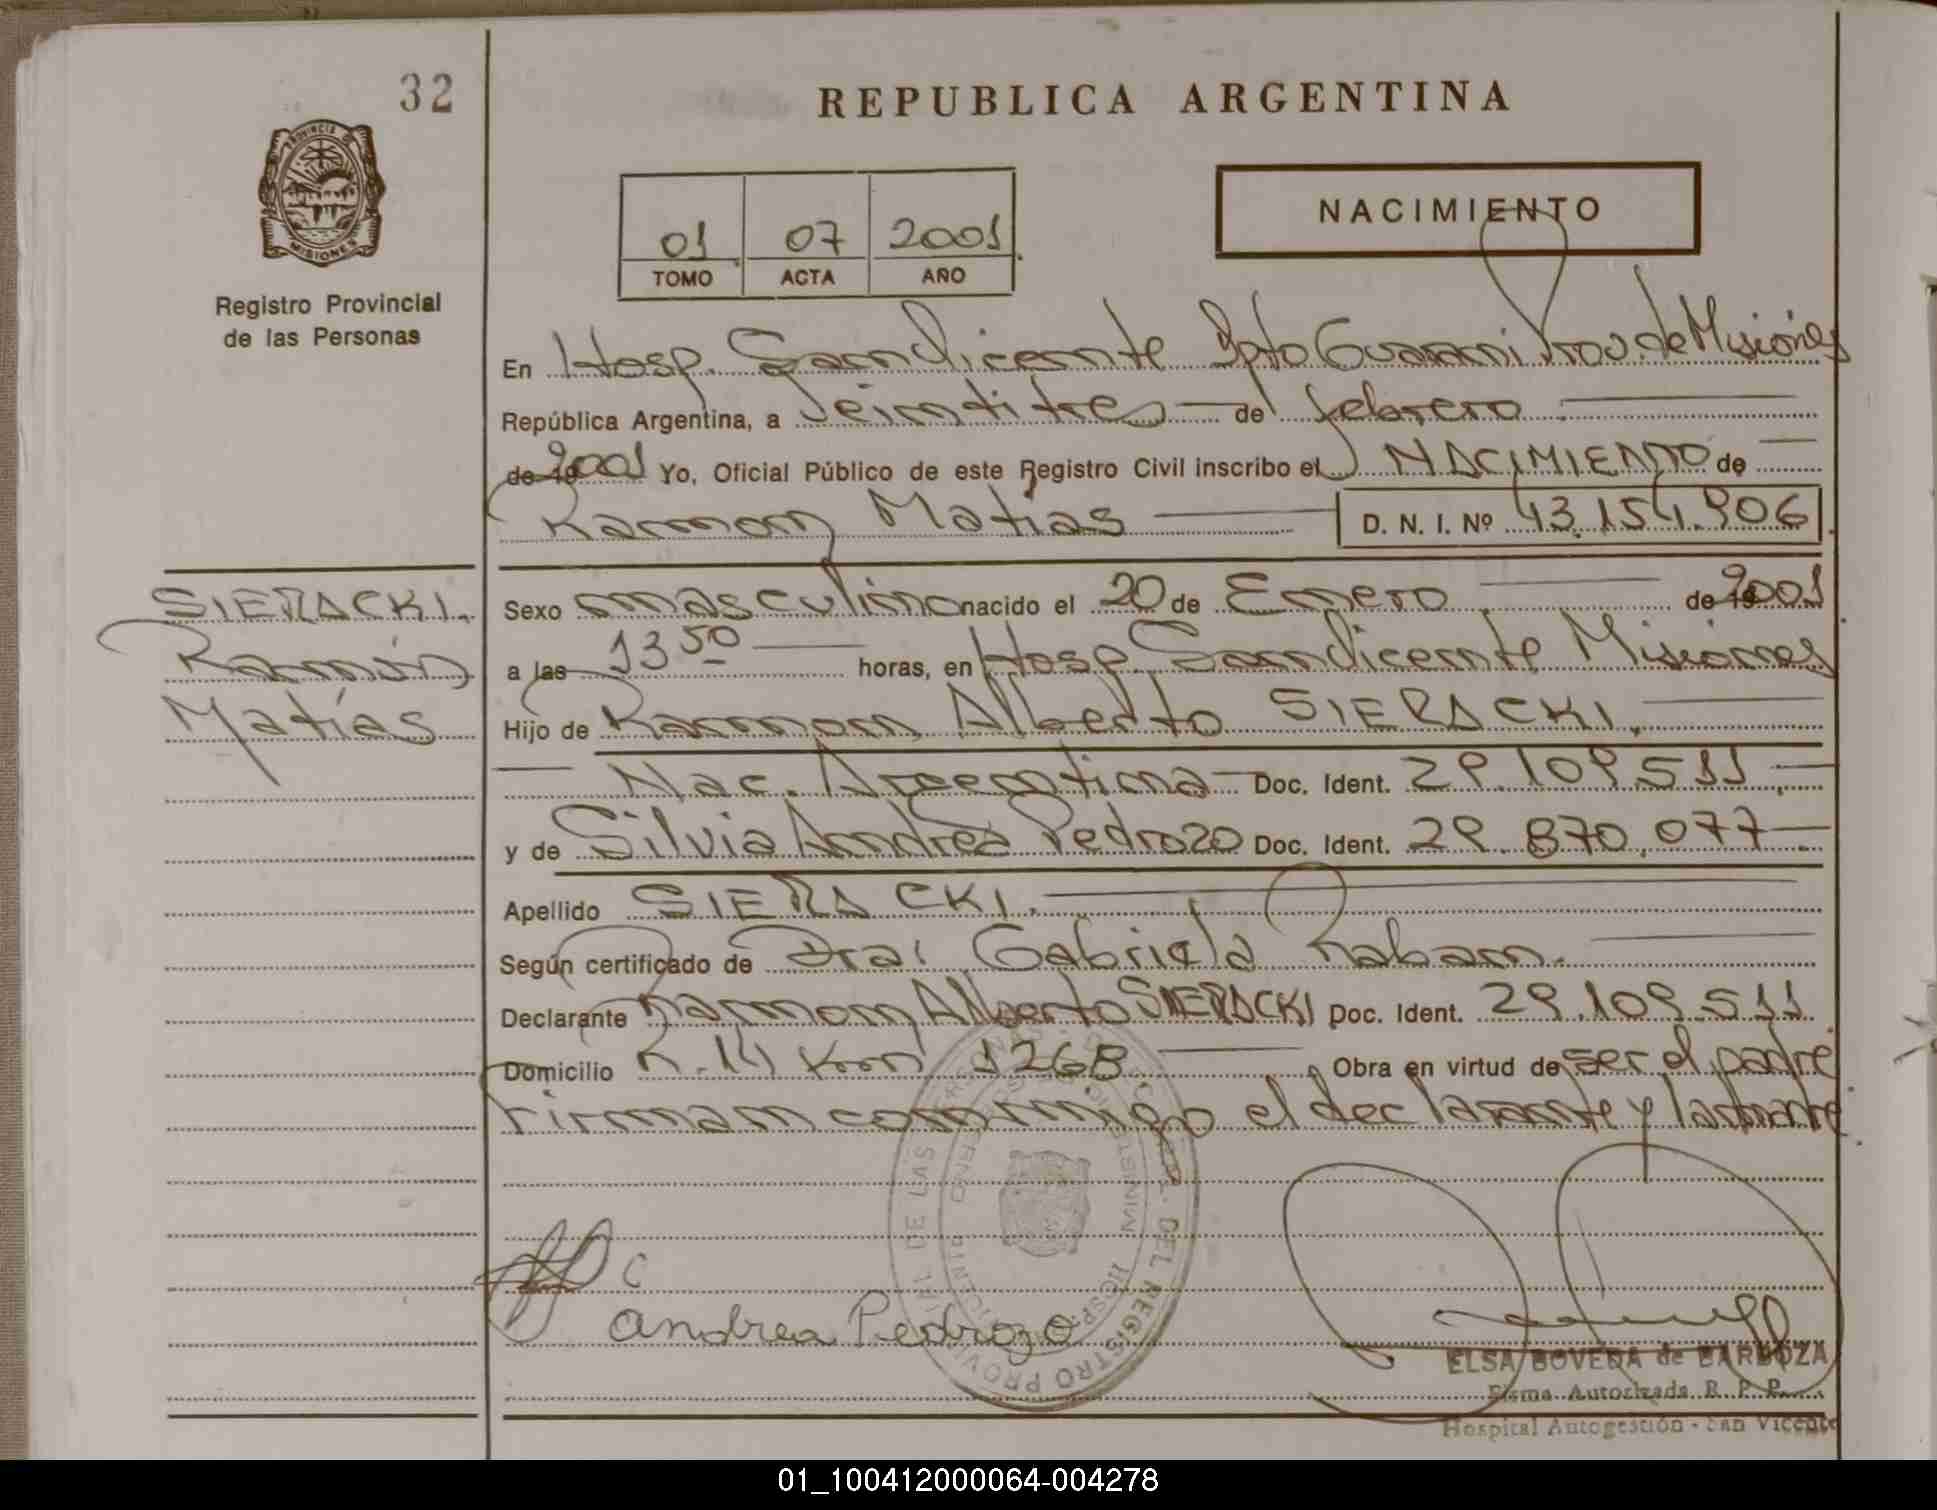 32
REPUBLICA ARGENTINA
PROVINCIA DE
MISIONES
Registro Provincial
de las Personas
01 07 2001
TOMO ACTA AÑO
NACIMIENTO
En Hosp. San Vicente Dpto Guarani Prov. de Misiones
República Argentina, a Veintitres de febrero
de 19 2001 Yo, Oficial Público de este Registro Civil inscribo el NACIMIENTO de
Ramon Matías D. N. I. Nº 43.154.906
SIERACKI.
Ramón
Matías
Sexo masculino nacido el 20 de Enero de 19 2001
a las 13 50 horas, en Hosp. San Vicente Misiones
Hijo de Ramon Alberto SIERACKI.
Nac. Argentina Doc. Ident. 29.109.511
y de Silvia Andrea Pedrozo Doc. Ident. 29.870.077
Apellido SIERACKI.
Según certificado de Dra: Gabriela Raban.
Declarante Ramon Alberto SIERACKI Doc. Ident. 29.109.511
Domicilio R. 14 Km 1268 Obra en virtud de ser el padre
Firman conmigo el declarante y la madre
Andrea Pedrozo
DEL REGISTRO PROVINCIAL DE LAS
ELSA BOVEDA de BARBOZA
Firma Autorizada R. P. P.
Hospital Autogestión - San Vicente
01_100412000064-004278